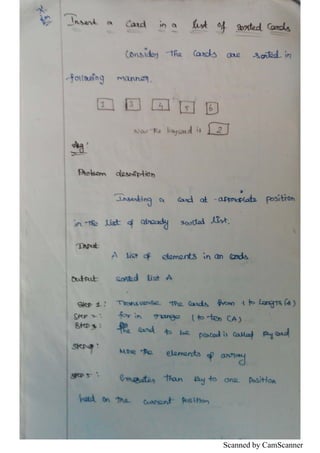 Insert a Card in a list of sorted Cards
Consider The Cards are sorted in
following manner.
1 3 4 5 6
Now the keycard is 2
Alg:
Problem description
Inserting a card at appropriate position
in the list of already sorted list.
Input
A list of elements in an cards
Output sorted list A
Step 1: Transverse The Cards from 1 to length (A)
Step 2: for in range (1 to len (A)
Step 3: the card to be placed is called key card
Step 4: Move the elements of array
Step 5: Greater than key to one position
head on the current position
Scanned by CamScanner